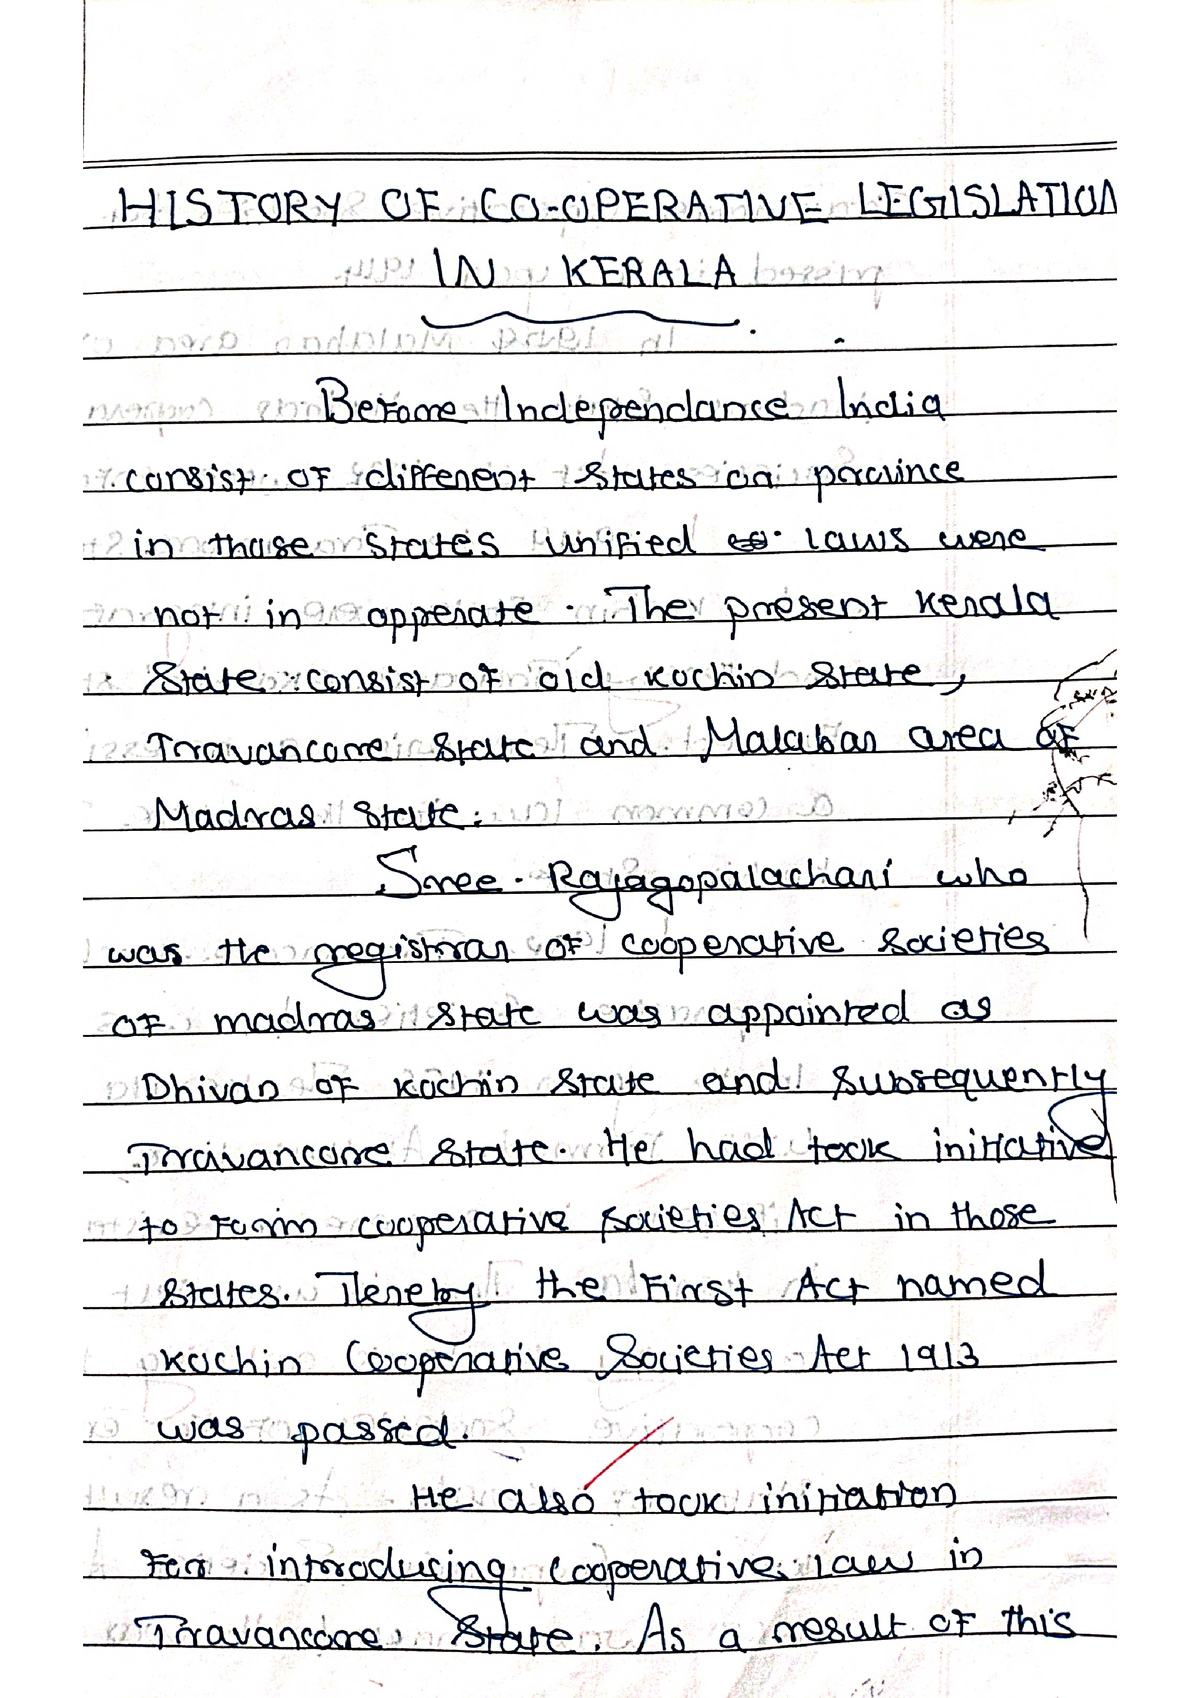 HISTORY OF CO-OPERATIVE LEGISLATION
IN KERALA
Before Independance India
consist of different states or province
in those states unified laws were
not in opperate. The present kerala
State consist of old kochin state,
Travancore state and Malabar area of
Madras state.
Sree. Rajagopalachari who
was the registrar of cooperative societies
of madras state was appointed as
Dhivan of kochin state and subsequently
Travancore state. He had took initiative
to form cooperative societies Act in those
states. Thereby the first Act named
kochin Cooperative Societies Act 1913
was passed.
He also took initiation
for introducing cooperative law in
Travancore state. As a result of this